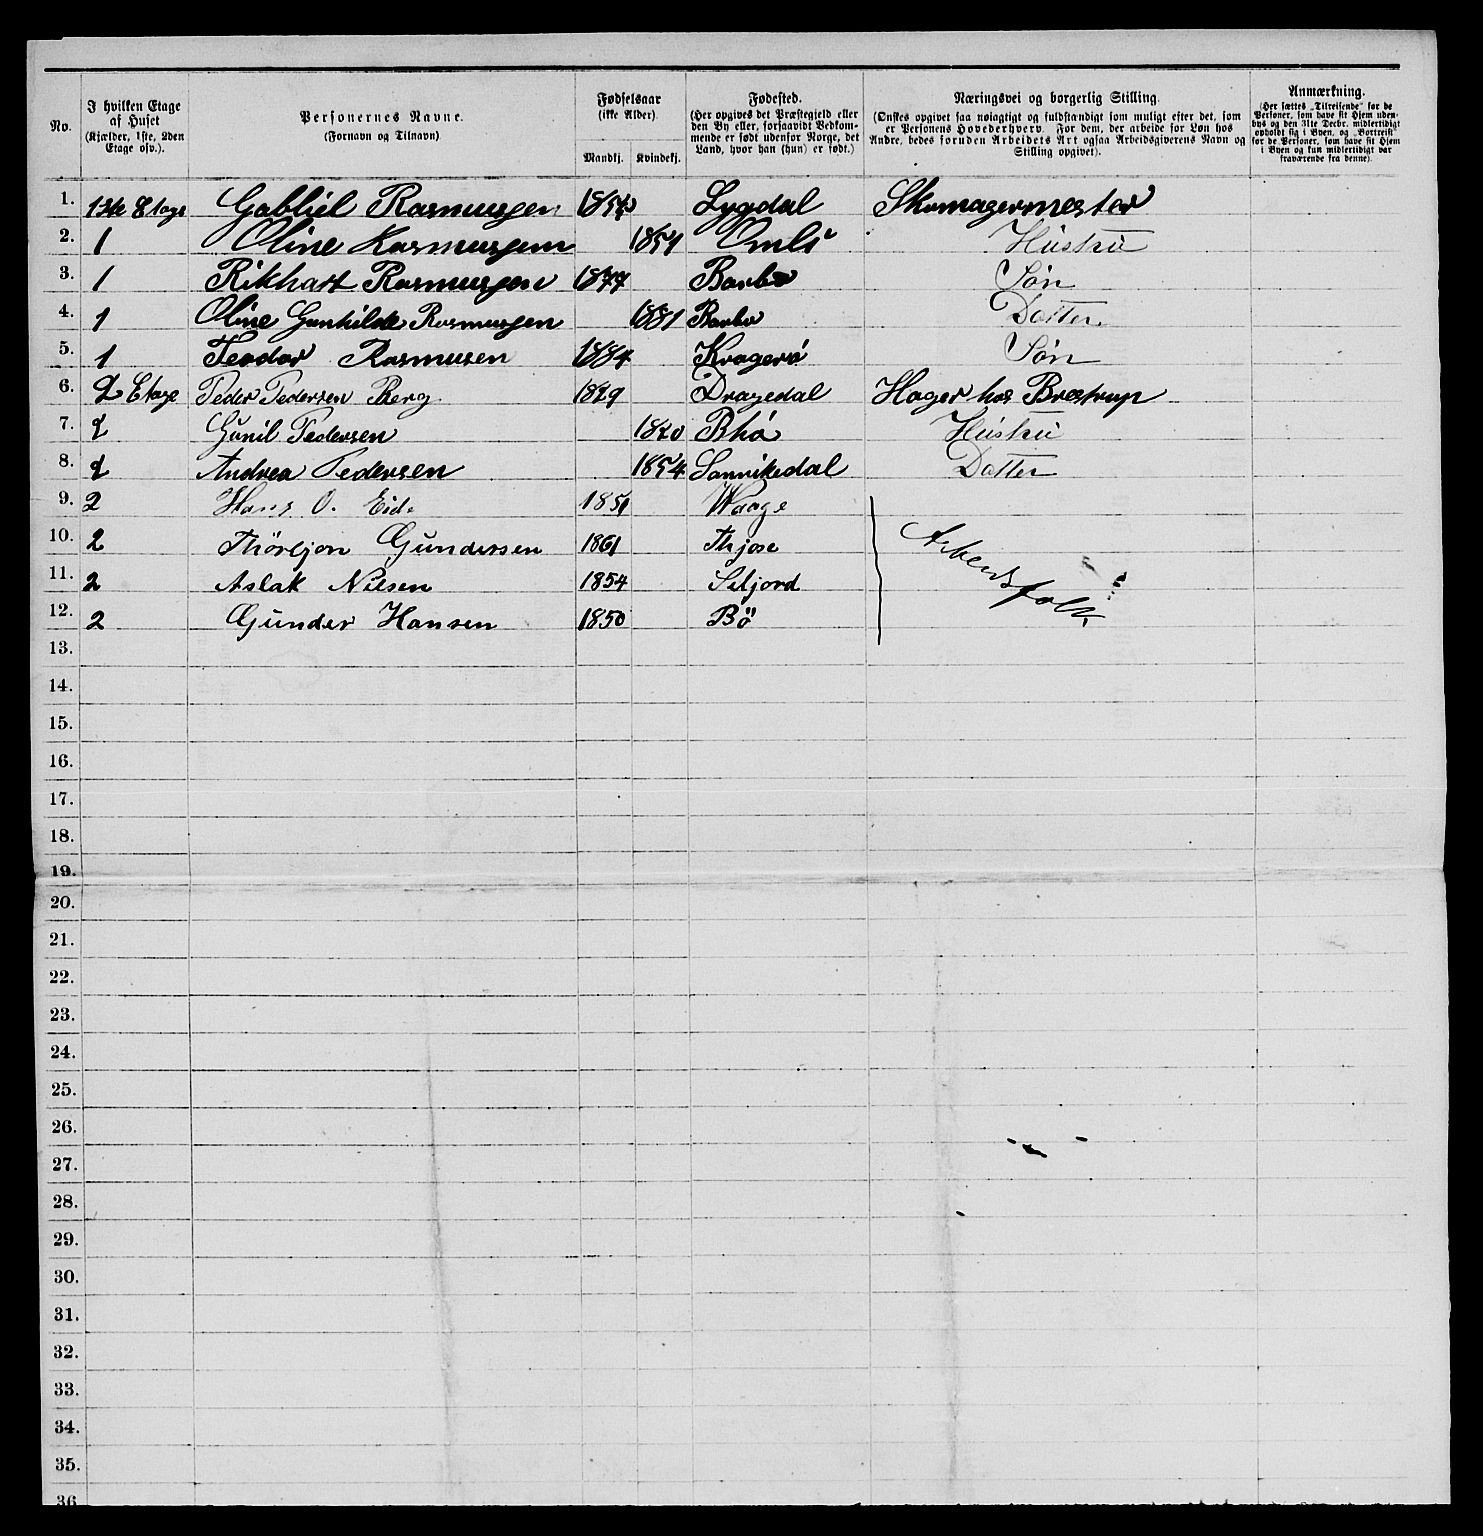 No.
I hvilken Etage af Huset (Kjælder, 1ste, 2den Etage osv.).
Personernes Navne. (Fornavn og Tilnavn)
Fødselsaar (ikke Alder).
Mandkj. Kvindekj.
Fødested. (Her opgives det Præstegjeld eller den By eller, forsaavidt Vedkommende er født udenfor Norge, det Land, hvor han (hun) er født.)
Næringsvei og borgerlig Stilling. (Ønskes opgivet saa nøiagtigt og fuldstændigt som muligt efter det, som er Personens Hovederhverv. For dem, der arbeide for Løn hos Andre, bedes foruden Arbeidets Art ogsaa Arbeidsgiverens Navn og Stilling opgivet).
Anmærkning. (Her sættes „Tilreisende" for de Personer, som have sit Hjem udenbys og den 31te Decbr. midlertidigt opholdt sig i Byen, og „Bortreist" for de Personer, som have sit Hjem i Byen og kun midlertidigt var fraværende fra denne).
1. 1ste Etage Gabliel Rasmussen Lygdal Skomagermester
2. 1 Oline Rasmussen 1851 Omli Hustru
3. 1 Rikhart Rasmussen 1877 Barbo Søn
4. 1 Oline Gunhilde Rasmussen 1881 Barbo Datter
5. 1 Teodor Rasmusen 1884 Kragerö Søn
6. 2 Etage Peder Pedersen Berg 1829 Dragedal Hager hos Brostrup
7. 2 Gunil Pedersen 1820 Bhö Hustru
8. 2 Andrea Pedersen 1854 Sannikedal Datter
9. 2 Hans O. Eide 1851 Waage
10. 2 Thörbjørn Gundersen 1861 Thjøse Arbeidsfolk
11. 2 Aslak Nilsen 1854 Siljord
12. 2 Gunder Hansen 1850 Bö
13.
14.
15.
16.
17.
18.
19.
20.
21.
22.
23.
24.
25.
26.
27.
28.
29.
30.
31.
32.
33.
34.
35.
36